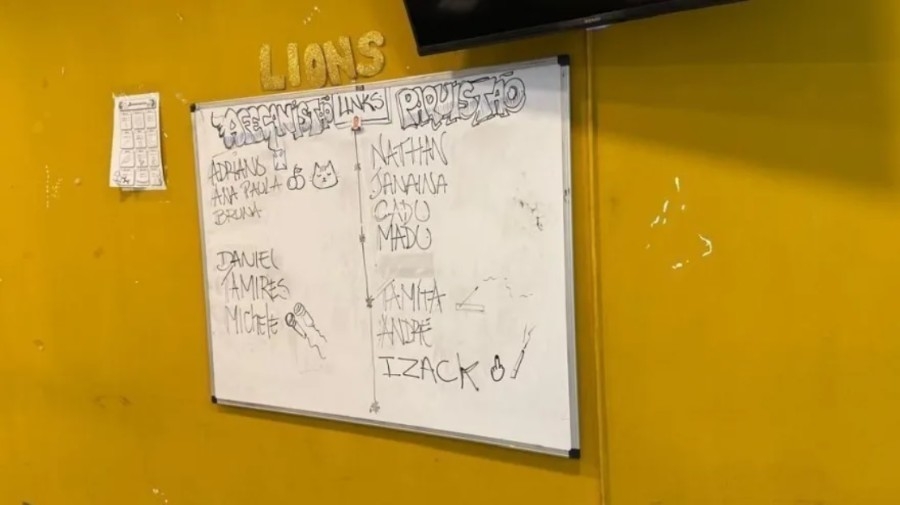 LIONS
AFEGANISTÃO
LINKS
PAQUISTÃO
ADRIANO
ANA PAULA
BRUNA
DANIEL
TAMIRES
MICHELE
NATHAN
JANAINA
CADU
MADU
TAMITA
ANDRÉ
IZACK